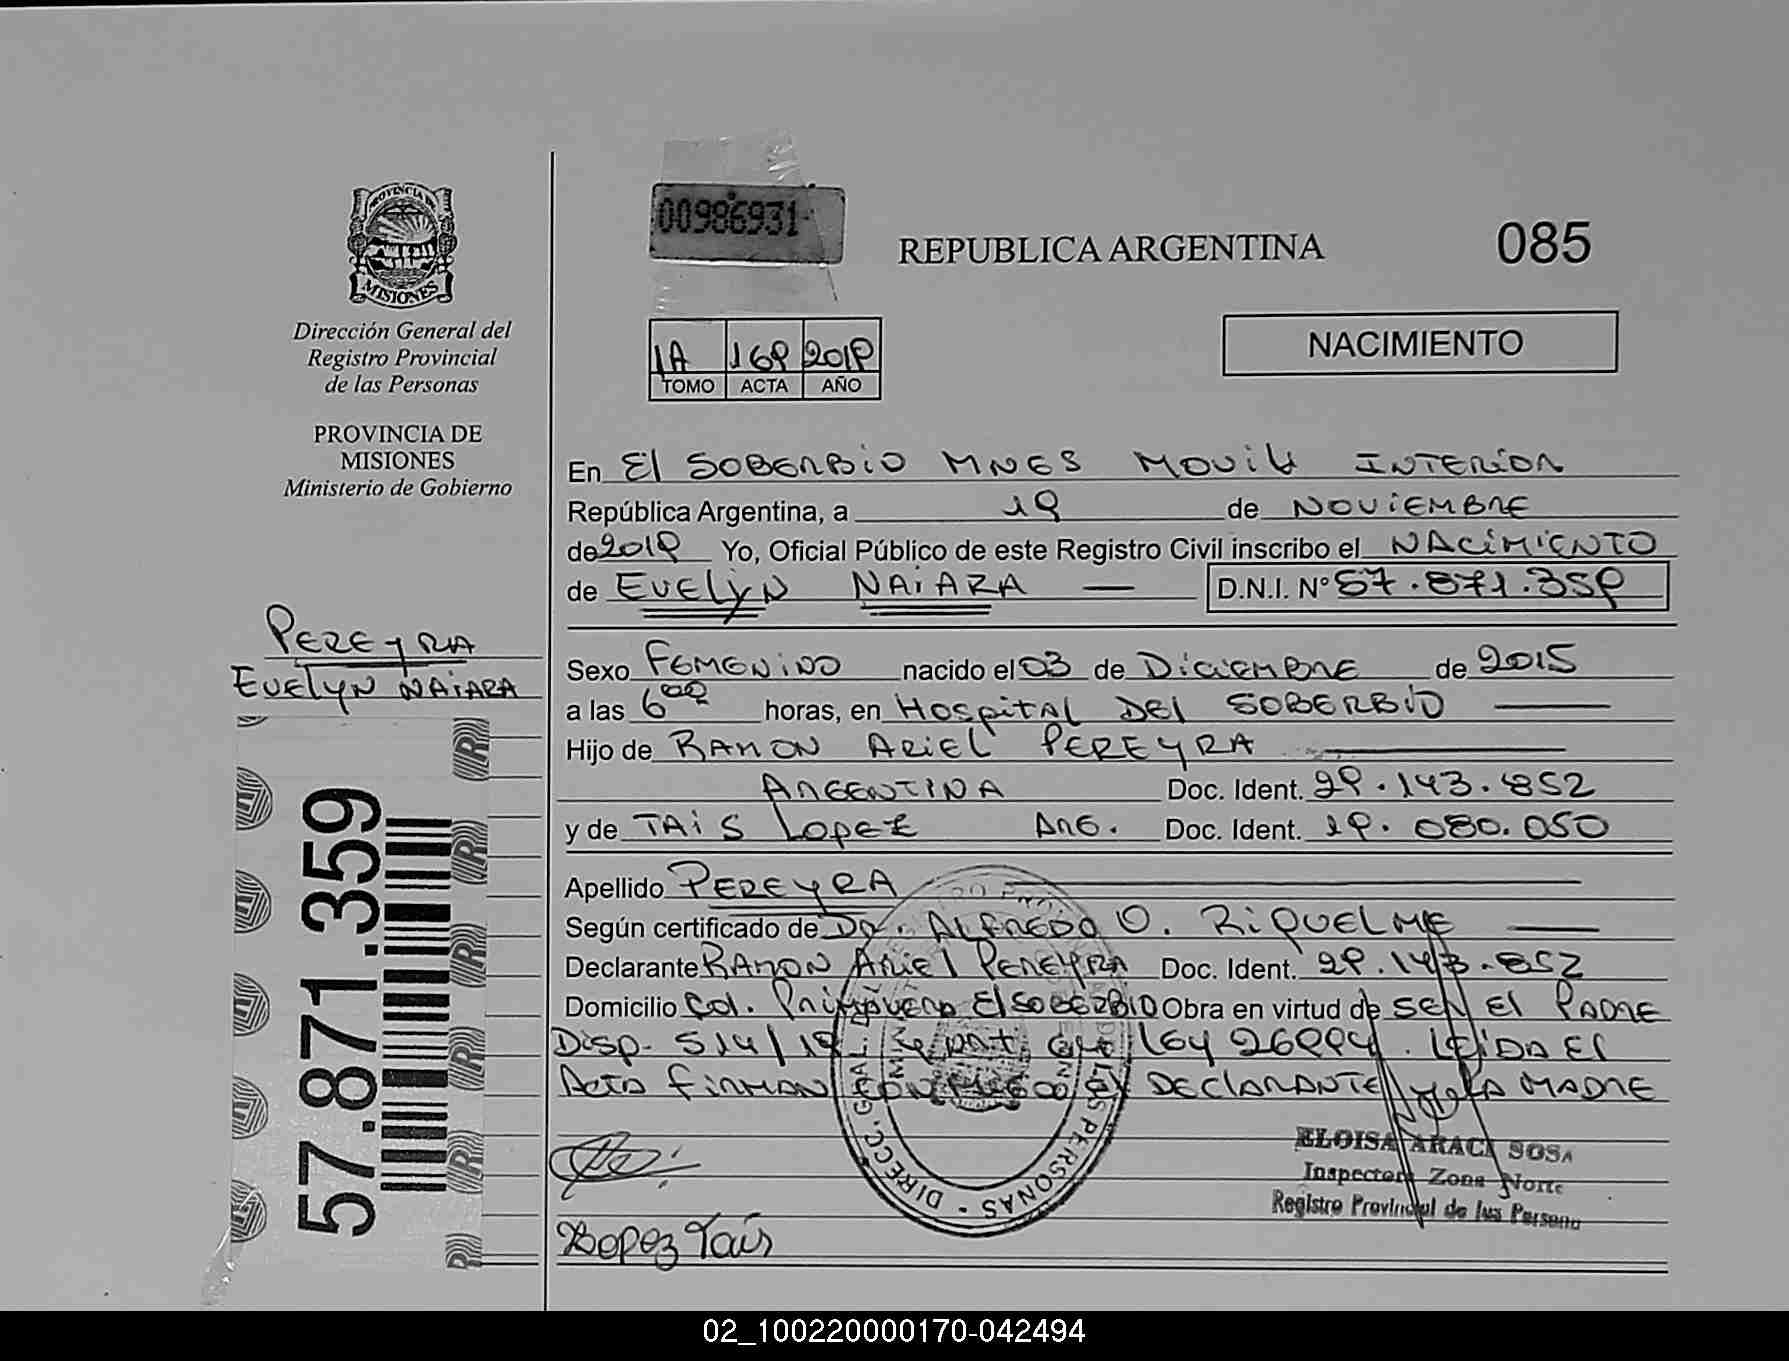 PROVINCIA DE
MISIONES
Dirección General del
Registro Provincial
de las Personas
PROVINCIA DE
MISIONES
Ministerio de Gobierno
PEREYRA
EVELYN NAIARA
57.871.359
00986931
REPUBLICA ARGENTINA
085
NACIMIENTO
1A 169 2019
TOMO ACTA AÑO
En El SOBERBIO MNES MOVIL INTERIOR
República Argentina, a 19 de NOVIEMBRE
de 2019 Yo, Oficial Público de este Registro Civil inscribo el NACIMIENTO
de EVELYN NAIARA — D.N.I. N° 57.871.359
Sexo FEMENINO nacido el 03 de DICIEMBRE de 2015
a las 6 00 horas, en HOSPITAL DEL SOBERBIO —
Hijo de RAMON ARIEL PEREYRA —
ARGENTINA Doc. Ident. 29.143.852
y de TAIS LOPEZ ARG. Doc. Ident. 19.080.050
Apellido PEREYRA —
Según certificado de DR. ALFREDO O. RIQUELME —
Declarante RAMON ARIEL PEREYRA Doc. Ident. 29.143.852
Domicilio Col. PRIMAVERA El SOBERBIO Obra en virtud de SER El PADRE
DISP. 514/19 LEY 26994. LEIDA El
ACTA FIRMAN CONMIGO El DECLARANTE y LA MADRE
DIRECC. GRAL. DEL REGISTRO PROV. DE LAS PERSONAS
ELOISA ARACI SOSA
Inspectora Zona Norte
Registro Provincial de las Persona
Lopez Tais
02_100220000170-042494